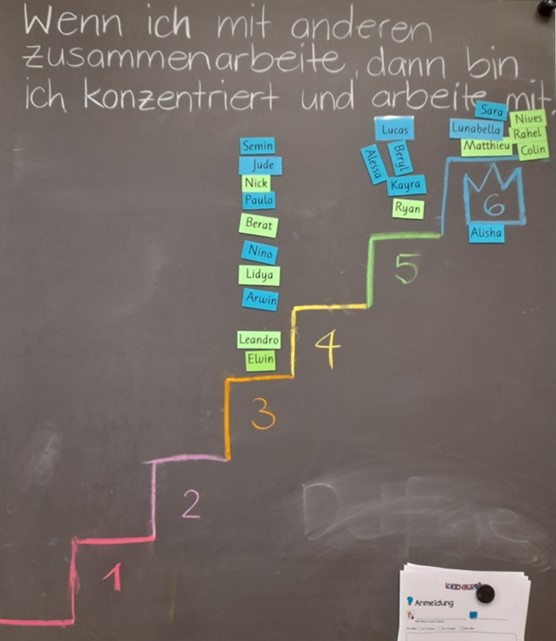 Wenn ich mit anderen
zusammenarbeite, dann bin
ich konzentriert und arbeite mit.
Sara
Nives
Lucas
Lunabella
Rahel
Matthieu
Colin
Semin
Jude
Alessa
Beryl
Nick
Kayra
Paulo
Ryan
6
Berat
Alisha
Nino
5
Lidya
Arwin
Leandro
4
Elvin
3
2
1
Anmeldung